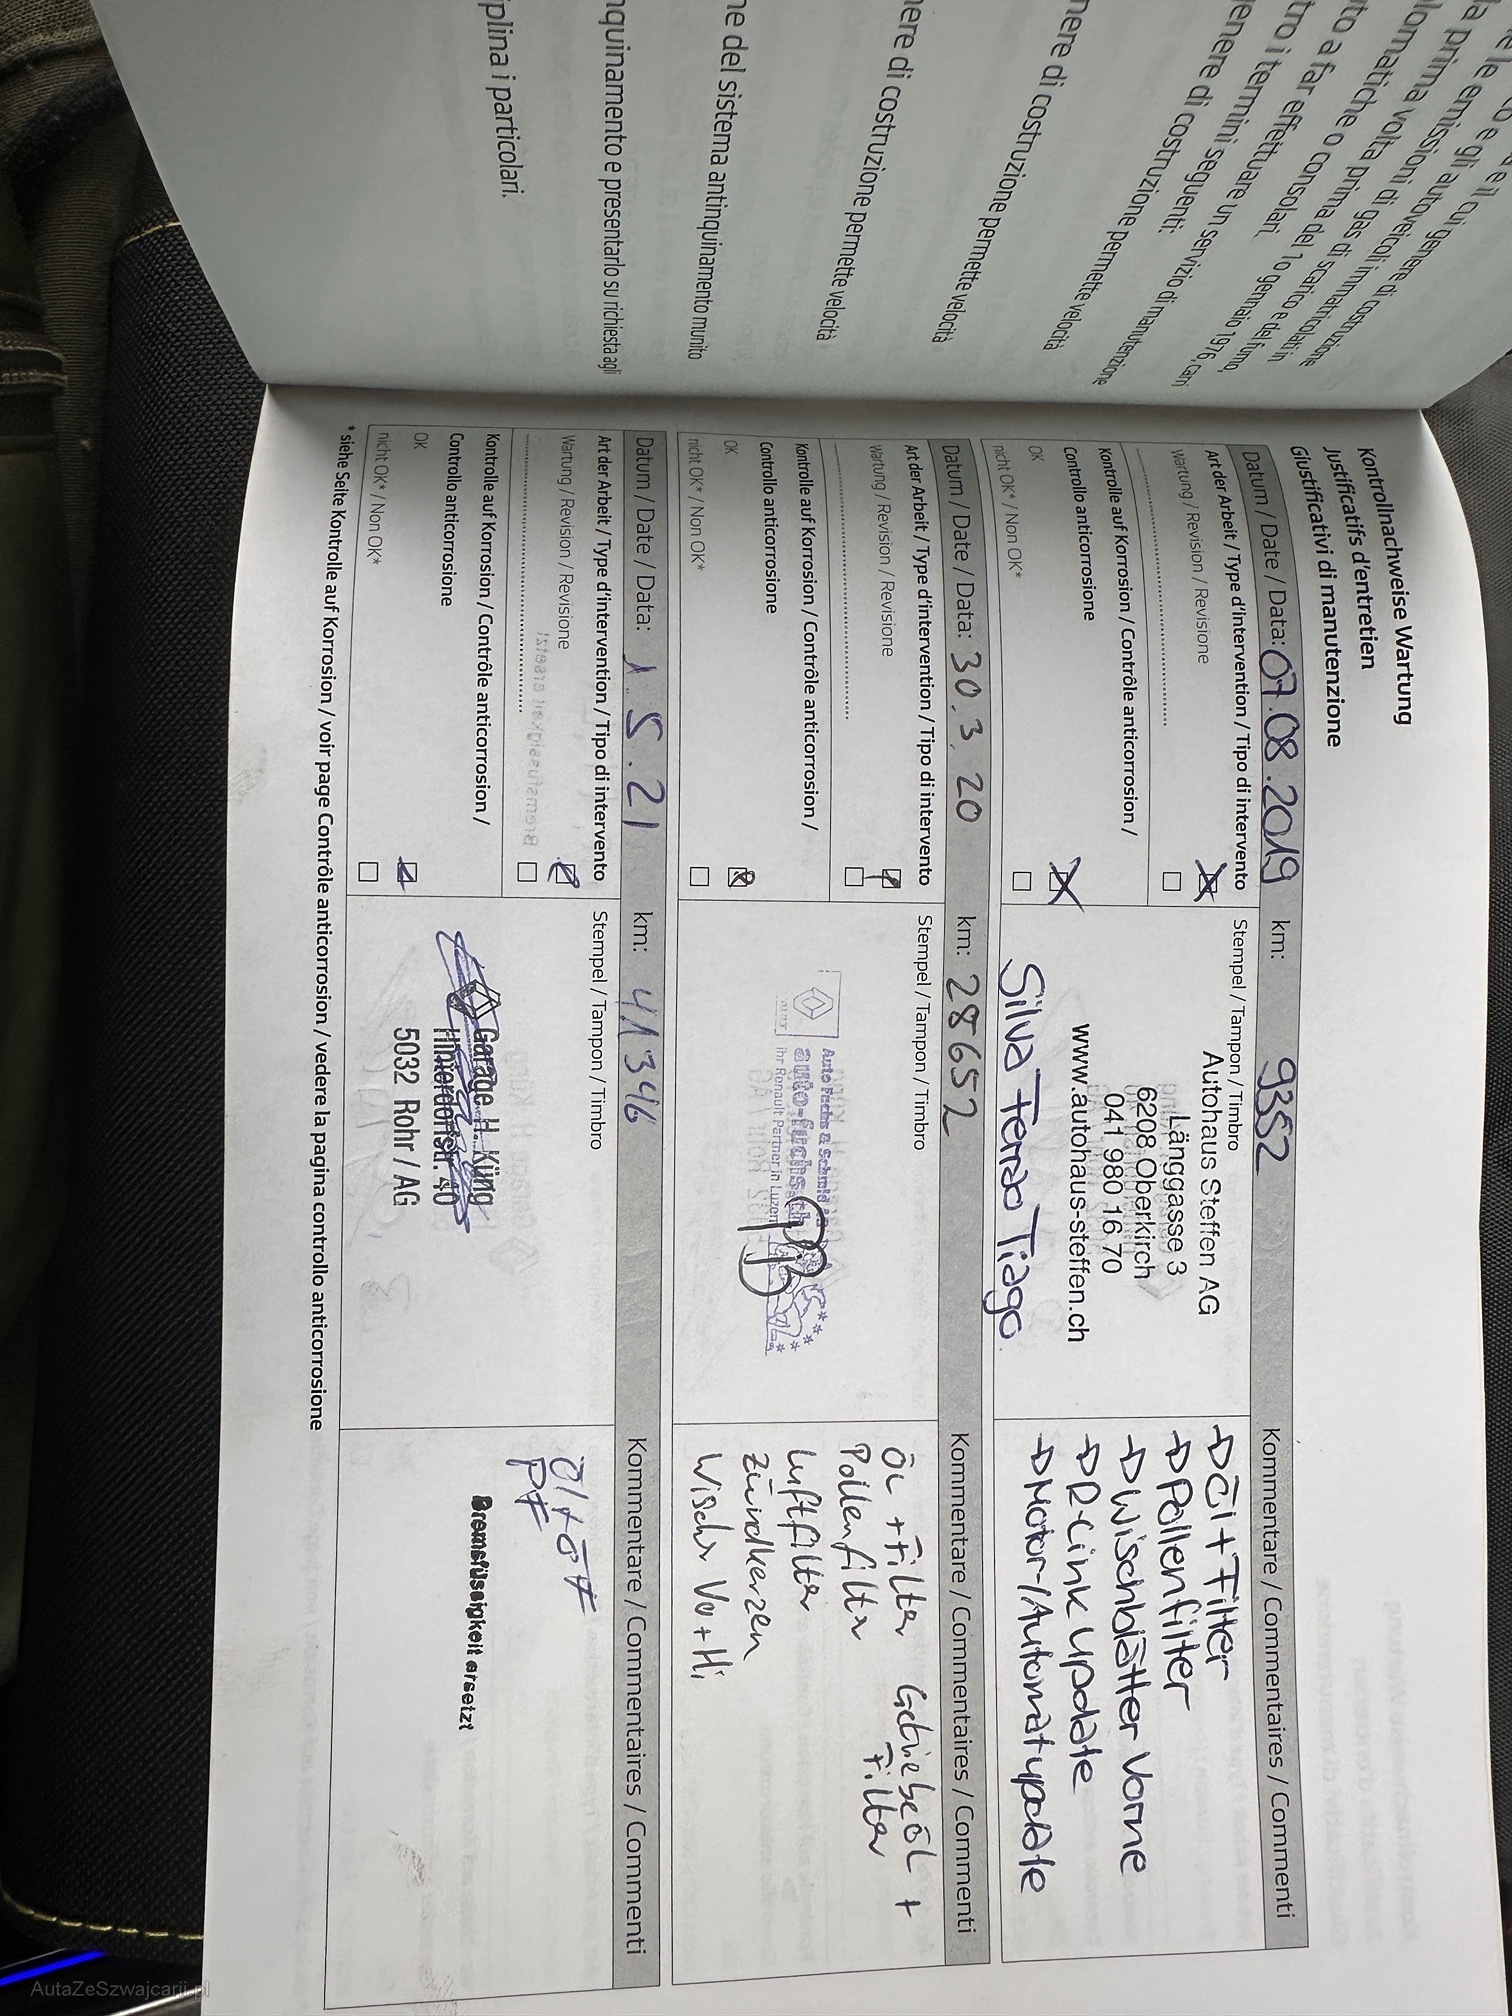 plina i particolari.
nquinamento e presentarlo su richiesta agli
ne del sistema antinquinamento munito
nere di costruzione permette velocità
nere di costruzione permette velocità
genere di costruzione permette velocità
tro i termini seguenti:
tro far effettuare un servizio di manutenzione
Kontrollnachweise Wartung
Justificatifs d'entretien
Giustificativi di manutenzione
Datum / Date / Data: 07.08.2019 km: 9352 Kommentare / Commentaires / Commenti
Art der Arbeit / Type d'intervention / Tipo di intervento
Wartung / Revision / Revisione
Kontrolle auf Korrosion / Contrôle anticorrosion /
Controllo anticorrosione
OK
nicht OK* / Non OK*
Stempel / Tampon / Timbro
Autohaus Steffen AG
Länggasse 3
6208 Oberkirch
041 980 16 70
www.autohaus-steffen.ch
Silva Ferrao Tiago
→ Öl + Filter
→ Pollenfilter
→ Wischblätter Vorne
→ R-Link update
→ Motor-/Automatupdate
Datum / Date / Data: 30.3.20 km: 28652 Kommentare / Commentaires / Commenti
Art der Arbeit / Type d'intervention / Tipo di intervento
Wartung / Revision / Revisione
Kontrolle auf Korrosion / Contrôle anticorrosion /
Controllo anticorrosione
OK
nicht OK* / Non OK*
Stempel / Tampon / Timbro
Auto Fuchs & Schmid
auto-fuchs.ch
ihr Renault Partner in Luzern
ÖL + Filter Getriebeöl +
Pollenfilter Filter
Luftfilter
Zündkerzen
Wischer Vo + Hi
Datum / Date / Data: 1.5.21 km: 41346 Kommentare / Commentaires / Commenti
Art der Arbeit / Type d'intervention / Tipo di intervento
Wartung / Revision / Revisione
Kontrolle auf Korrosion / Contrôle anticorrosion /
Controllo anticorrosione
OK
nicht OK* / Non OK*
Stempel / Tampon / Timbro
Garage H. Küng
Hinterdorfstr. 40
5032 Rohr / AG
Öl + ÖF
PF
Bremsfüssigkeit ersetzt
* siehe Seite Kontrolle auf Korrosion / voir page Contrôle anticorrosion / vedere la pagina controllo anticorrosione
AutaZeSzwajcarii.pl